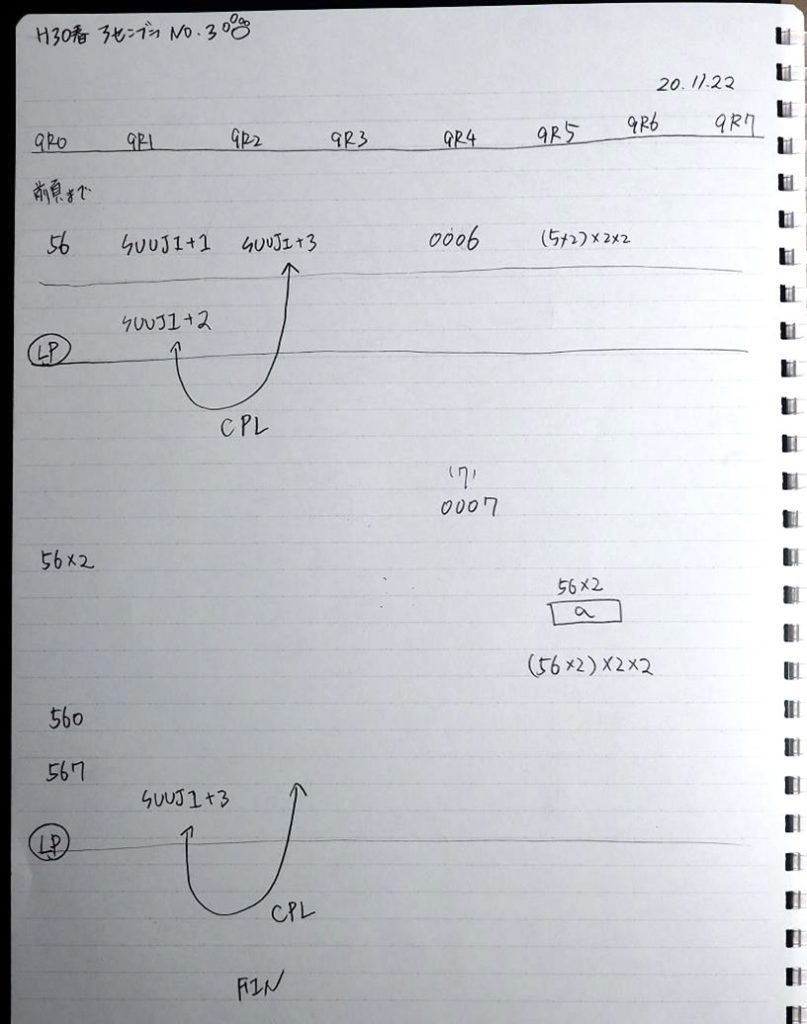 H30春 アセンブラ NO.3
20.11.22
GR0 GR1 GR2 GR3 GR4 GR5 GR6 GR7
前頁まで
56 SUUJI+1 SUUJI+3 0006 (5×2)×2×2
SUUJI+2
LP
CPL
'7'
0007
56×2
56×2
a
(56×2)×2×2
560
567
SUUJI+3
LP
CPL
FIN